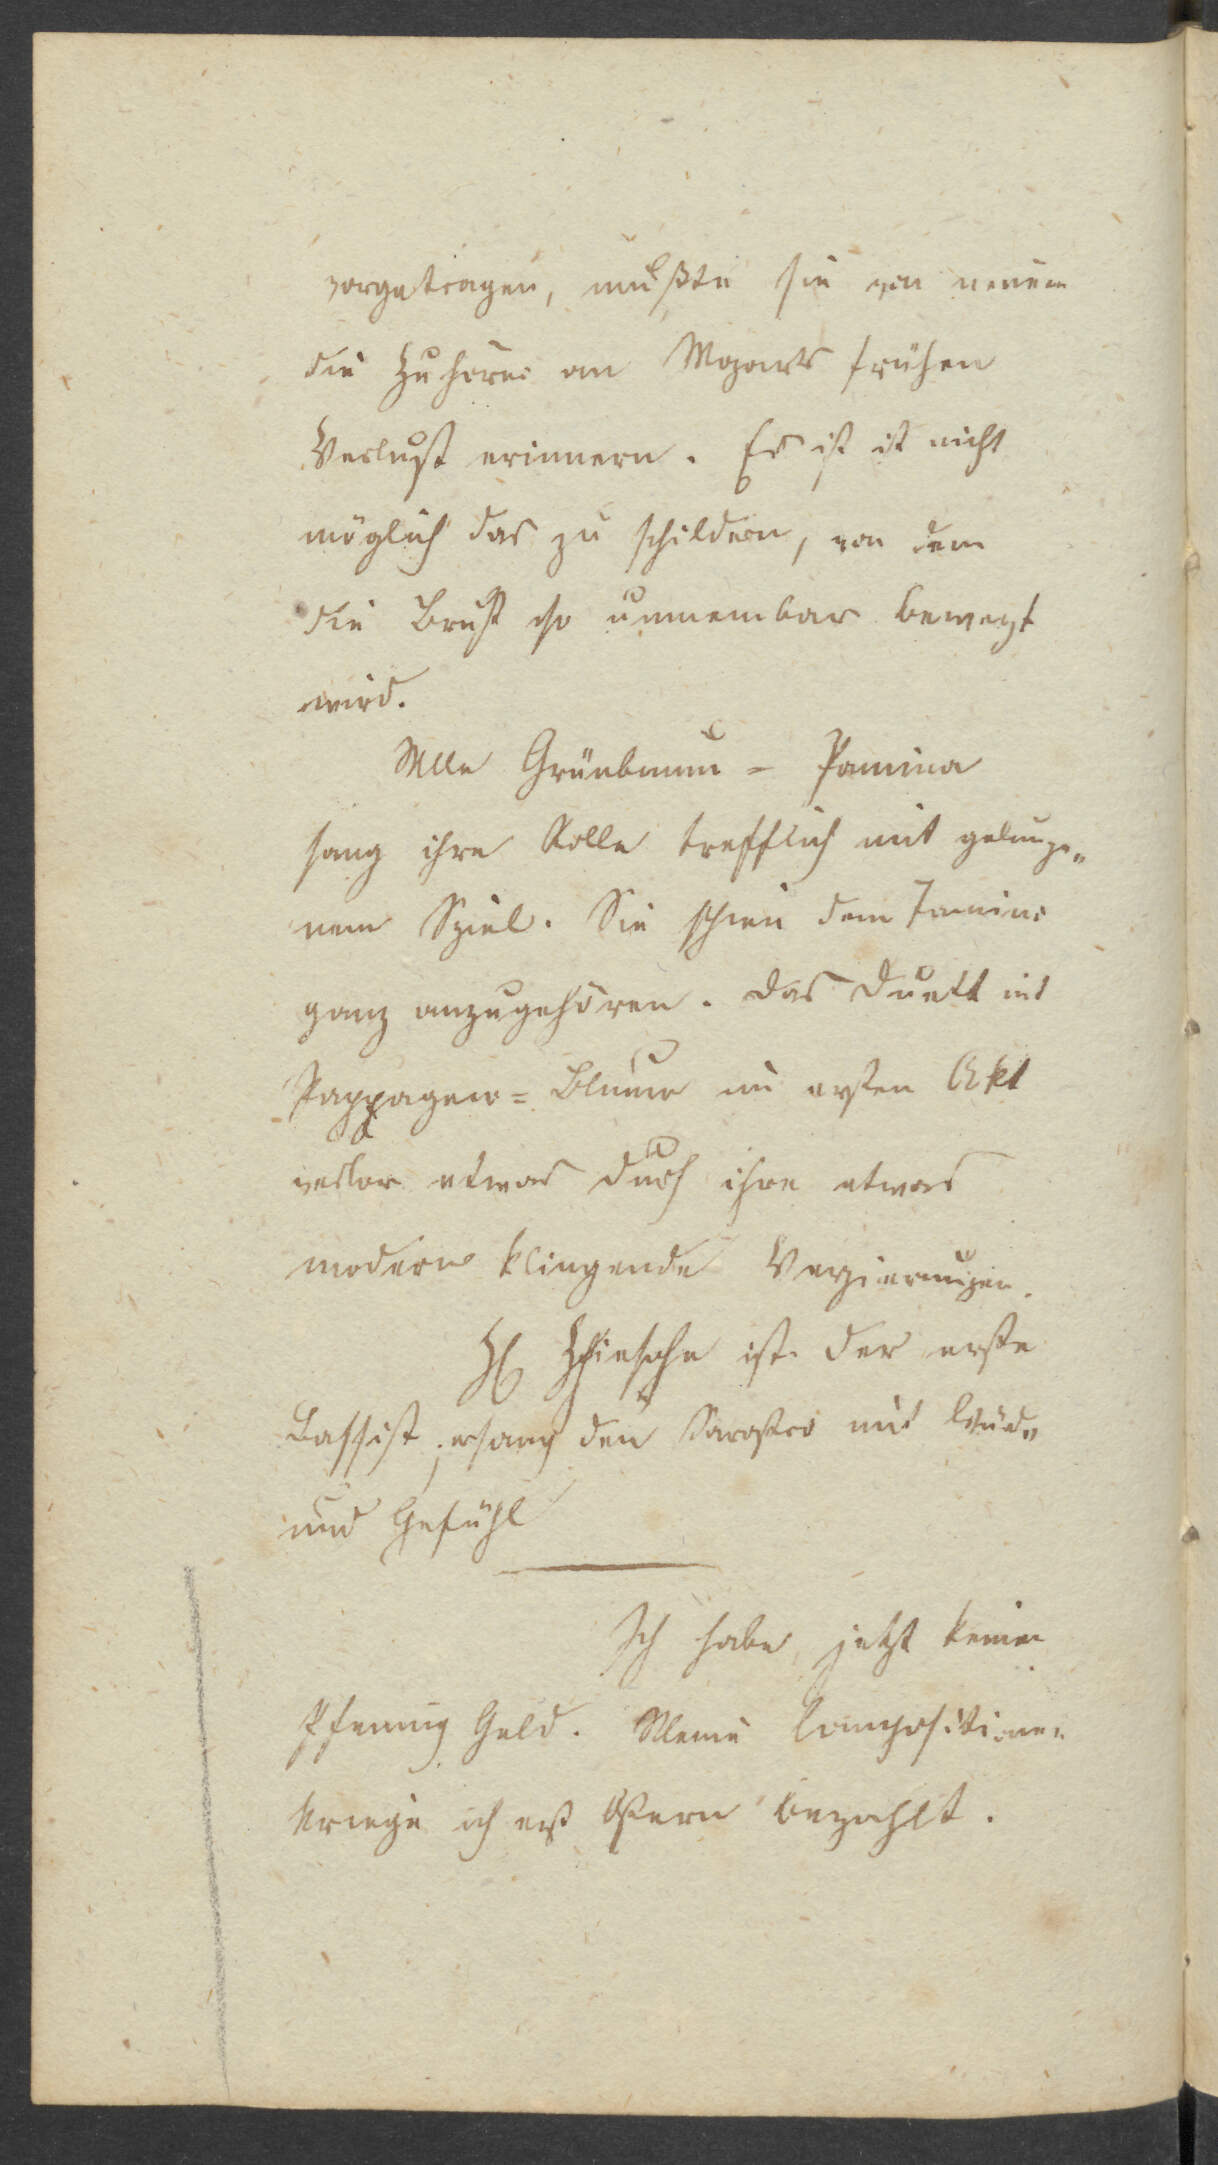 vorgetragen, mußte sie von neuem
die Zuhörer an Mozarts frühen
Verlust erinnern. Es ist ist nicht
möglich das zu schildern, von dem
die Brust so unnennbar bewegt
wird.
Mlle Grünbaum = Pamina
sang ihre Rolle trefflich mit gelunge„
nem Spiel. Sie schien dem Tamino
ganz anzugehören. Das Duett mit
Pappageno = Blume im ersten Akt
verlor etwas durch ihre etwas
modern klingende Verzierungen.
H ist der erste
Bassist; er sang den Sarastro mit Würde
und Gefühl
Ich habe jetzt keinen
Pfennig Geld. Meine Compositionen
kriege ich erst Ostern bezahlt.